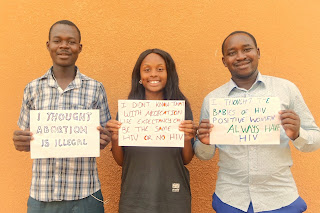 I THOUGHT
ABORTION
IS ILLEGAL
I DON'T KNOW THAT
WITH MEDICATION
LIFE EXPECTANCY CAN
BE THE SAME
HIV OR NO HIV
I THOUGHT
BABIES OF HIV
POSITIVE WOMEN
ALWAYS HAVE
HIV